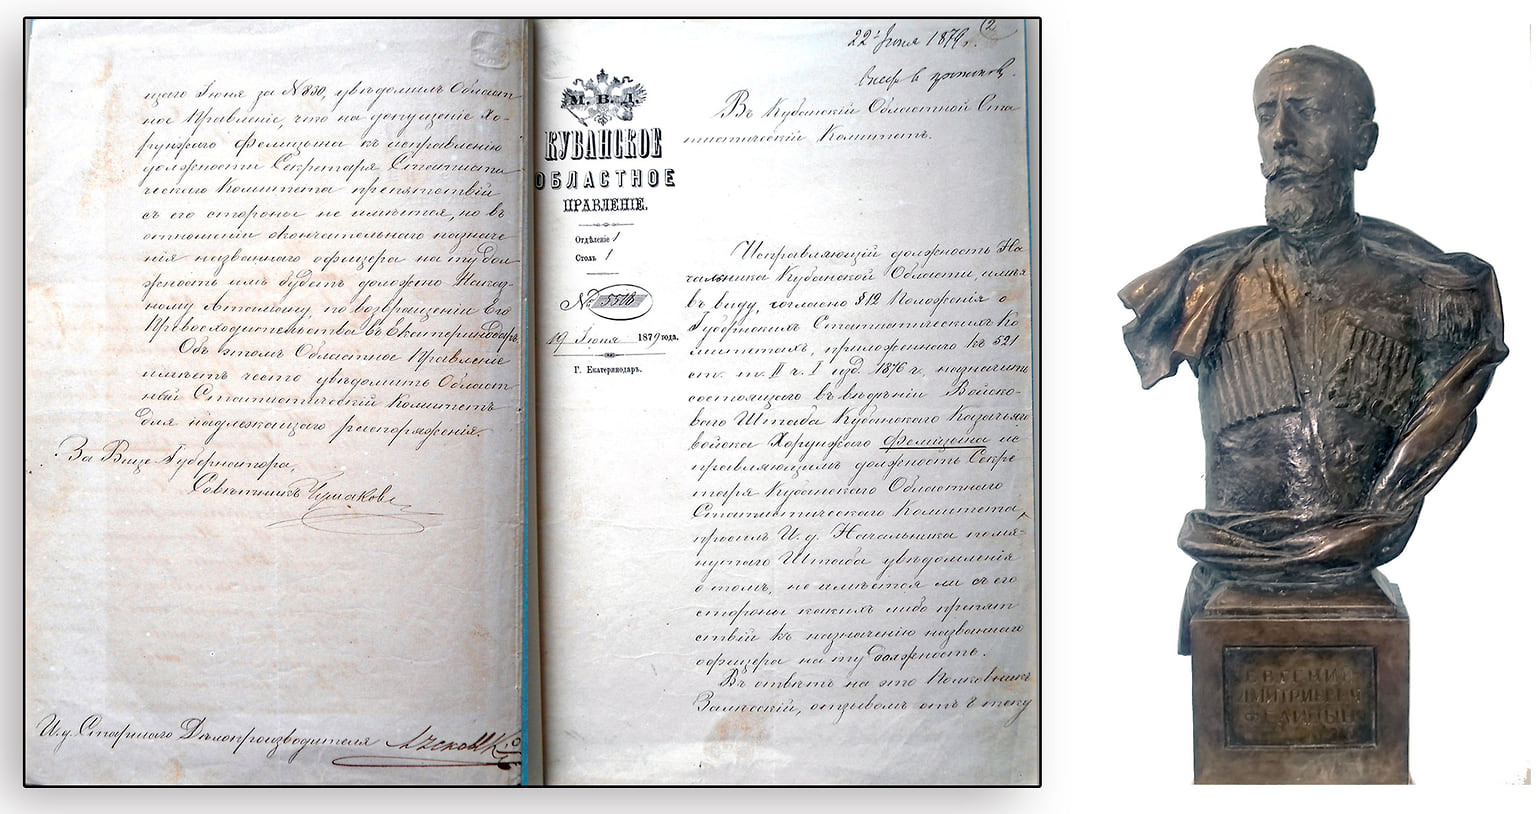 щаго Іюня за № 830, увѣдомилъ Област-
ное Правленіе, что на допущеніе Хо-
рунжаго Фелицына къ исправленію
должности Секретаря Статисти-
ческаго Комитета препятствій
съ его стороны не имѣется, но въ
отношеніи окончательнаго назначе-
нія названнаго офицера на ту дол-
жность имъ будетъ доложено Наказ-
ному Атаману, по возвращеніи Его
Превосходительства въ Екатеринодаръ.
Объ этомъ Областное Правленіе
имѣетъ честь увѣдомить Област-
ный Статистическій Комитетъ
для надлежащаго распоряженія.
За Вице-Губернатора,
Совѣтникъ Чумаковъ
И. д. Старшаго Дѣлопроизводителя
2
22 Іюня 1879 г.
М. В. Д.
КУБАНСКОЕ
ОБЛАСТНОЕ
ПРАВЛЕНІЕ.
Отдѣленіе 1
Столъ 1
№ 5518
19 Іюня 1879 года.
Г. Екатеринодаръ.
Въ Кубанскій Областной Ста
тистическій Комитетъ.
Исправляющій должность На
чальника Кубанской Области, имѣя
въ виду, согласно § 12 Положенія о
Губернскихъ Статистическихъ Ко
митетахъ, приложеннаго къ 521
ст. т. II ч. I изд. 1876 г., назначить
состоящаго въ вѣдѣніи Войско-
ваго Штаба Кубанскаго Казачьяго
войска Хорунжаго Фелицына ис
правляющимъ должность Секре
таря Кубанскаго Областнаго
Статистическаго Комитета,
просилъ И. д. Начальника помя-
нутаго Штаба увѣдомленія
о томъ, не имѣется ли съ его
стороны какихъ либо препят
ствій къ назначенію названнаго
офицера на ту должность.
Въ отвѣтъ на это Полковникъ
отзывомъ отъ 8 теку
ЕВГЕНИЙ
ДМИТРИЕВИЧ
ФЕЛИЦЫН